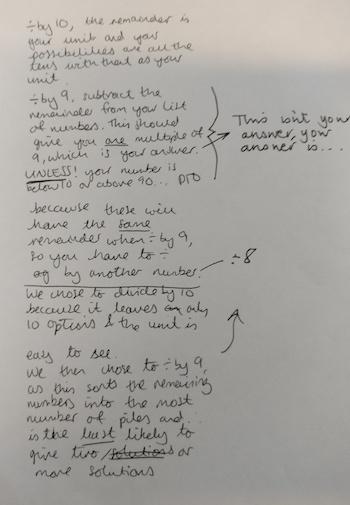 ÷ by 10, the remainder is
your unit and your
possibilities are all the
tens with that as your
unit.
÷ by 9, subtract the
remainder from your list
of numbers. This should
give you one multiple of
9, which is your answer.
UNLESS! your number is
below 10 or above 90... PTO
This isn't your
answer, your
answer is...
because these will
have the same
remainder when ÷ by 9,
so you have to ÷
eg by another number.
÷8
We chose to divide by 10
because it leaves only
10 options & the unit is
easy to see.
We then chose to ÷ by 9,
as this sorts the remaining
numbers into the most
number of piles and
is the least likely to
give two solutions or
more solutions